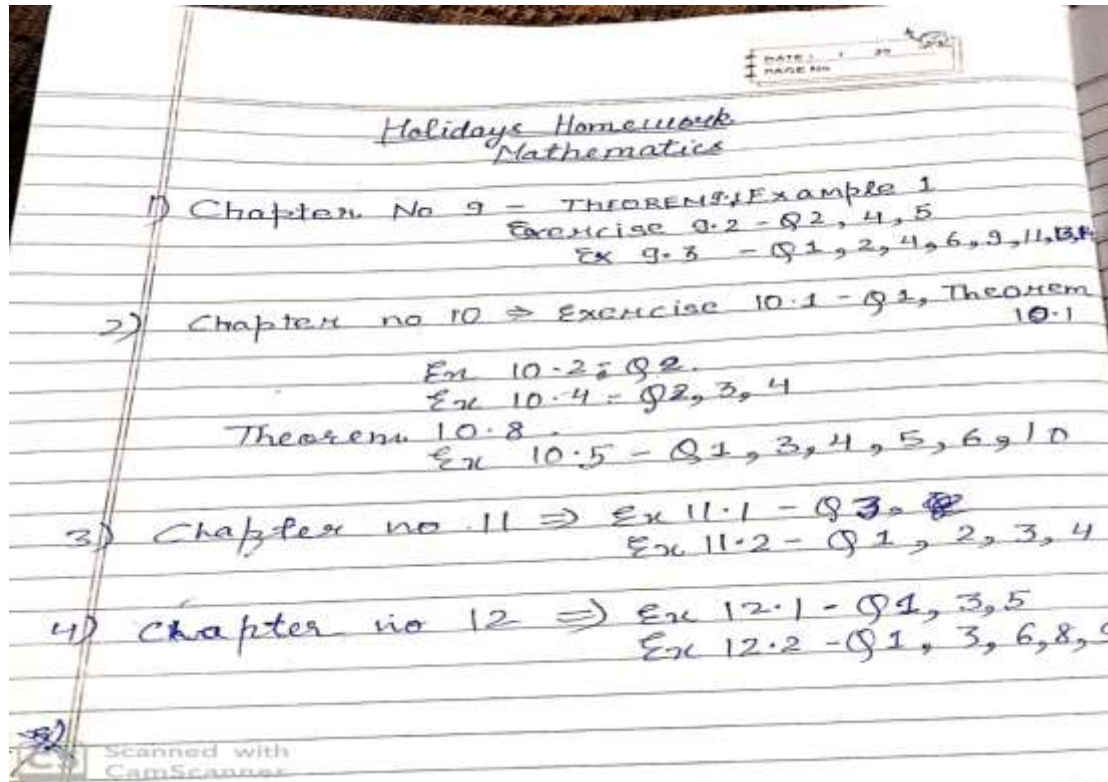 DATE :
PAGE No.
Holidays Homework
Mathematics
1) Chapter No 9 - THEOREM 9.1 Example 1
Exercise 9.2 - Q2, 4, 5
Ex 9.3 - Q1, 2, 4, 6, 9, 11, 13,
2) Chapter no 10 ⇒ Exercise 10.1 - Q1, Theorem
10.1
Ex 10.2 = Q2.
Ex 10.4 - Q2, 3, 4
Theorem 10.8.
Ex 10.5 - Q1, 3, 4, 5, 6, 10
3) Chapter no 11 ⇒ Ex 11.1 - Q3.
Ex 11.2 - Q1, 2, 3, 4
4) Chapter no 12 ⇒ Ex 12.1 - Q1, 3, 5
Ex 12.2 - Q1, 3, 6, 8,
CS Scanned with
CamScanner